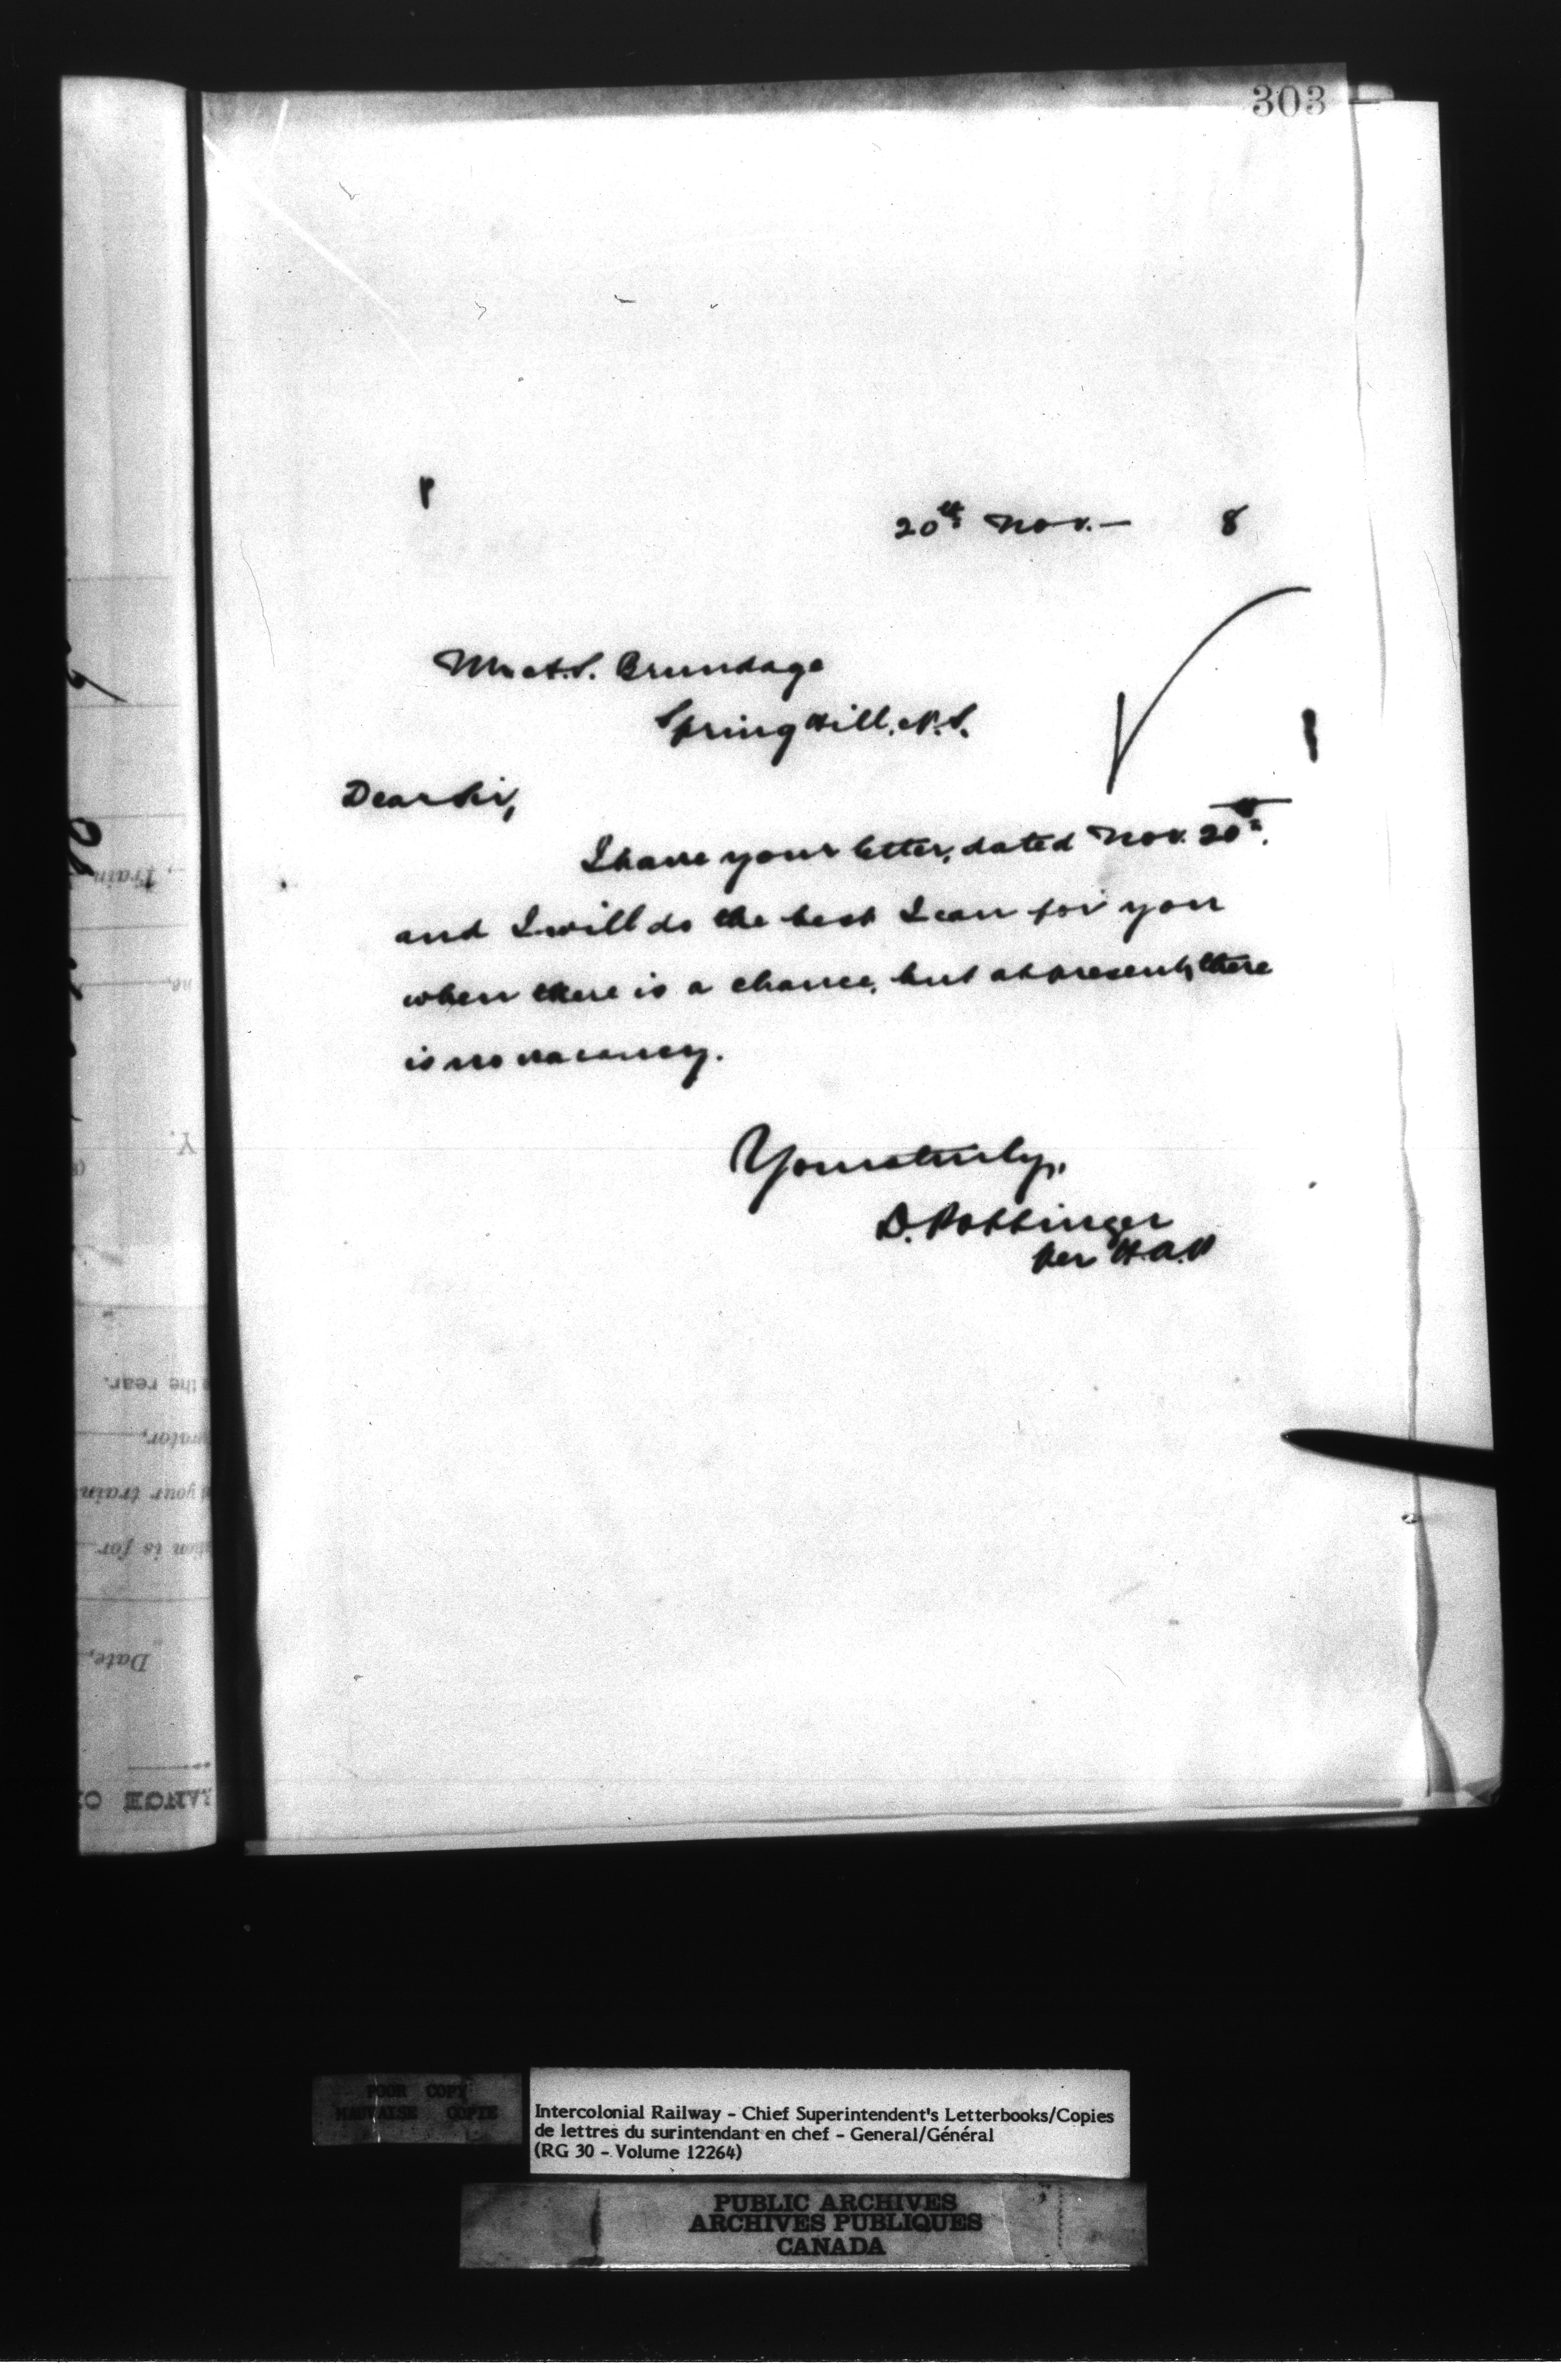 303
P
20th Nov.— 8
Mr. A.S. Brundage
Spring Hill, N.S.
Dear Sir,
I have your letter, dated Nov. 20th,
and I will do the best I can for you
when there is a chance, but at present, there
is no vacancy.
Yours truly,
D. Pottinger
per H.A.P
Train
Y.
the rear.
your train
is for
Date,
POOR COPY
MAUVAISE COPIE
Intercolonial Railway - Chief Superintendent's Letterbooks/Copies
de lettres du surintendant en chef - General/Général
(RG 30 - Volume 12264)
PUBLIC ARCHIVES
ARCHIVES PUBLIQUES
CANADA